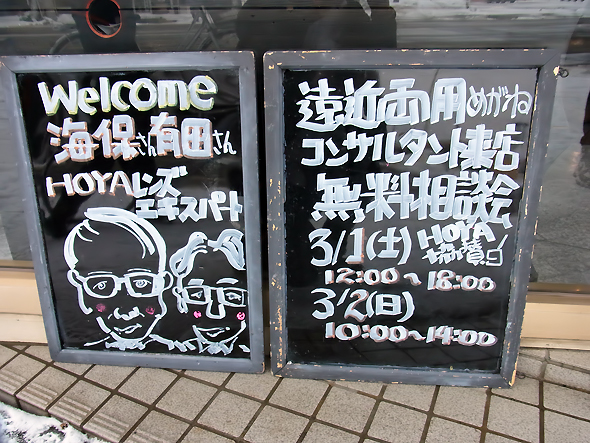 Welcome
海保さん有田さん
HOYAレンズ
エキスパート
遠近両用めがね
コンサルタント来店
無料相談会
3/1(土) HOYA
協賛
12:00〜18:00
3/2(日)
10:00〜14:00